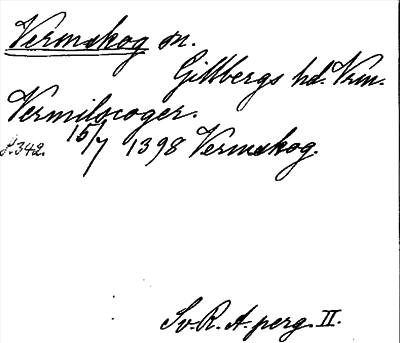 Vermskog sn.
Gillbergs hd. Vrm.
Vermilscoger.
s. 342. 16/7 1398 Vermskog.
Sv. R. A. perg. II.